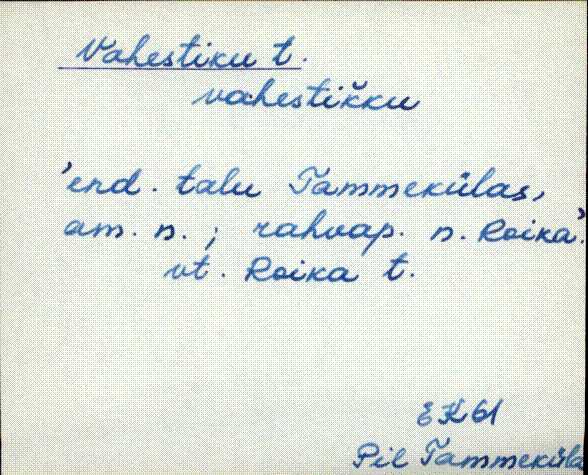 Vahestiku t.
vahestikku
'end. talu Tammekülas,
am. n.; rahvap. n. Roika'.
vt. Roika t.
EK 61
Pil Tammeküla